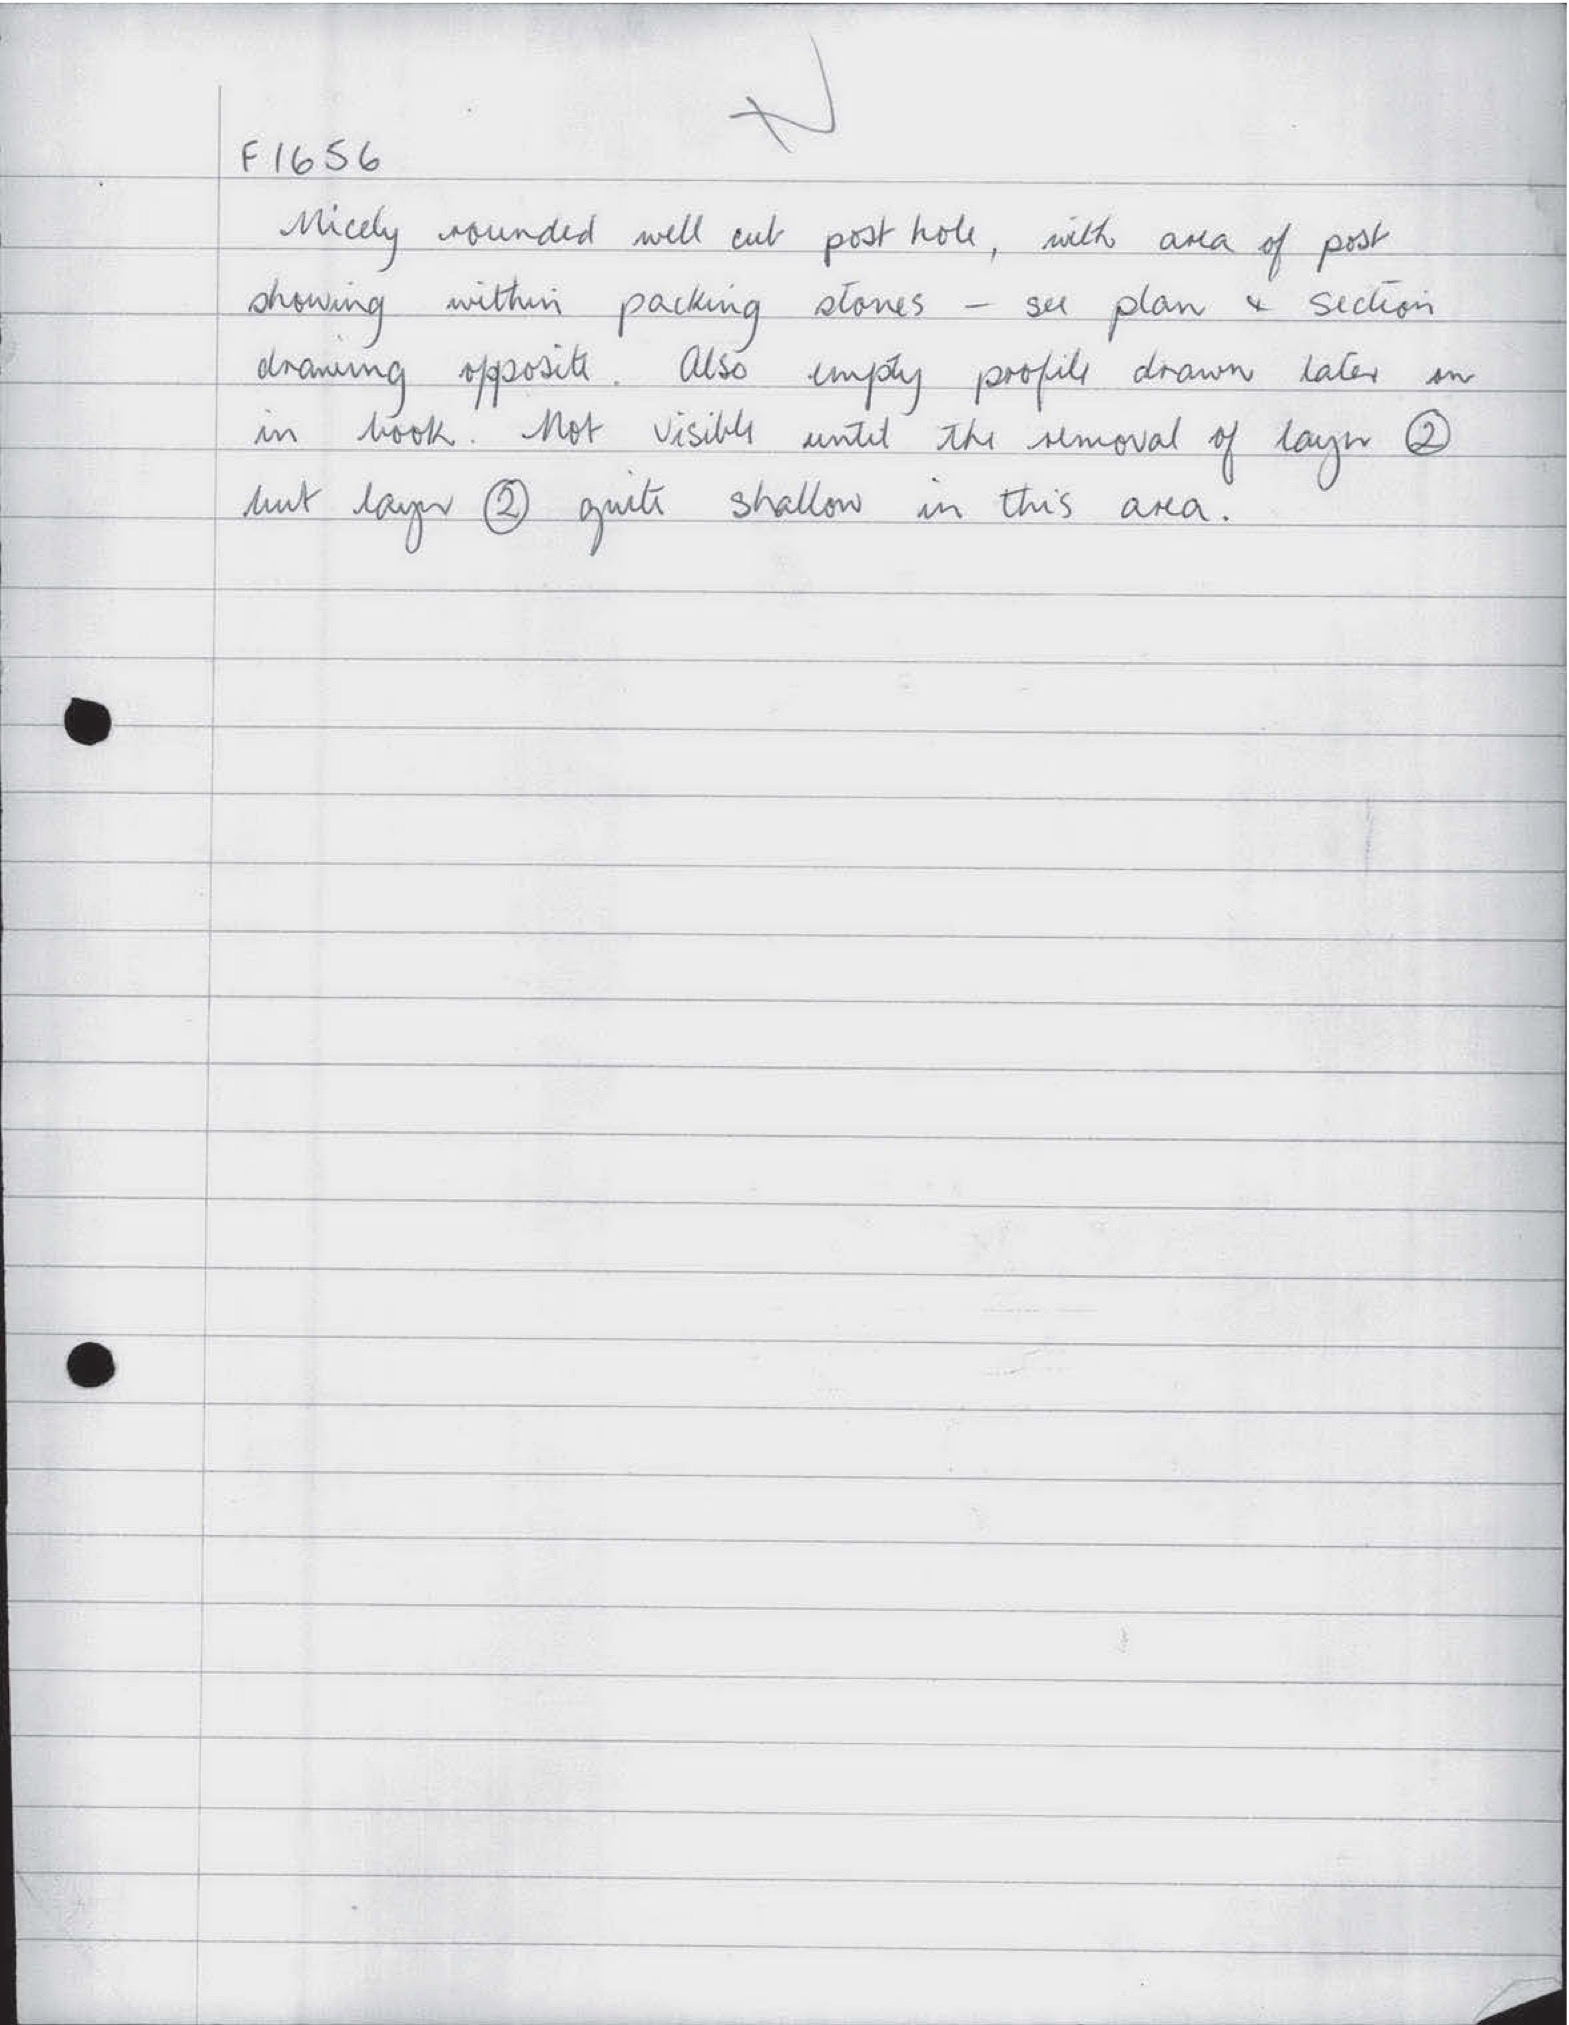 F1656
Nicely rounded well cut post hole, with area of post
showing within packing stones – see plan & section
drawing opposite. Also empty profile drawn later on
in book. Not visible until the removal of layer ②
but layer ② quite shallow in this area.